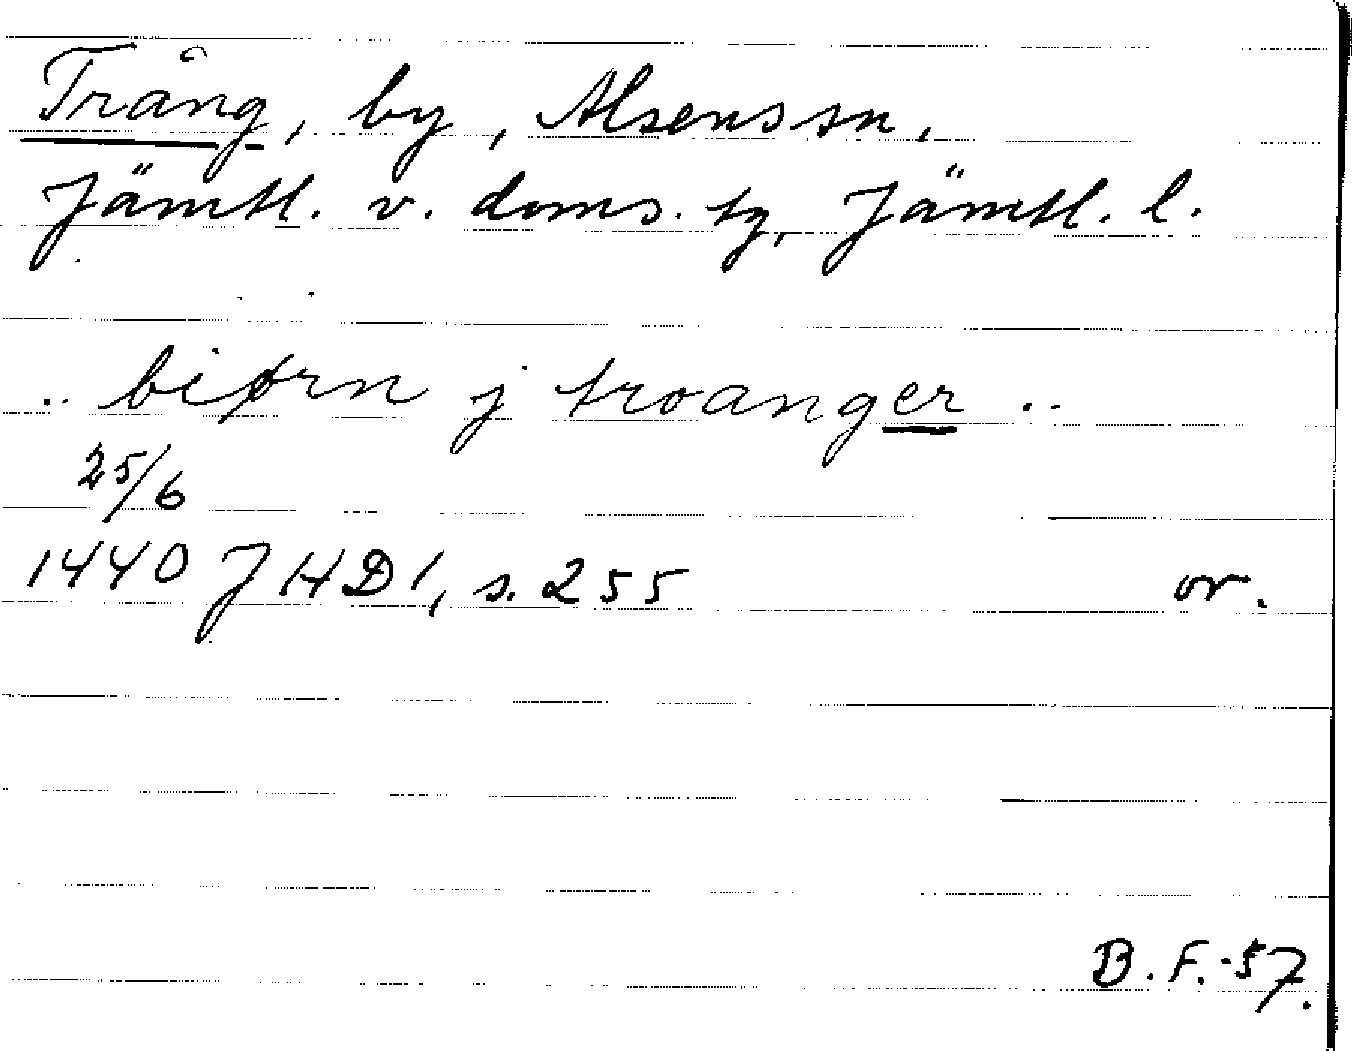 Trång, by, Alsens sn,
Jämtl. v. doms. tg, Jämtl. l.
.. biørn j troanger ..
25/6
1440 JHD 1, s. 255 or.
B. F. -57.